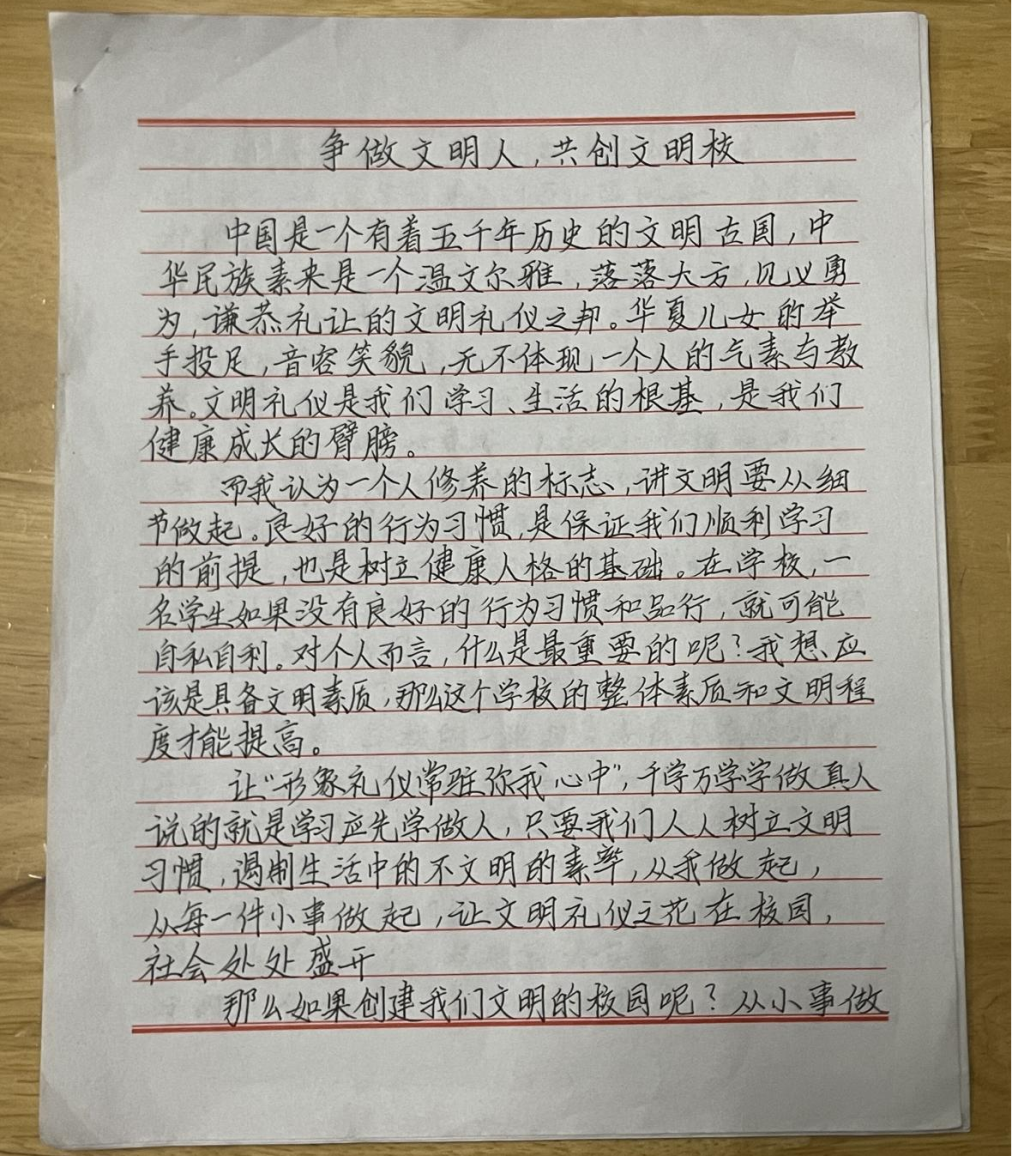 争做文明人,共创文明校
中国是一个有着五千年历史的文明古国,中
华民族素来是一个温文尔雅,落落大方,见义勇
为,谦恭礼让的文明礼仪之邦。华夏儿女的举
手投足,音容笑貌,无不体现一个人的气素与教
养。文明礼仪是我们学习、生活的根基,是我们
健康成长的臂膀。
而我认为一个人修养的标志,讲文明要从细
节做起。良好的行为习惯,是保证我们顺利学习
的前提,也是树立健康人格的基础。在学校,一
名学生如果没有良好的行为习惯和品行,就可能
自私自利。对个人而言,什么是最重要的呢?我想应
该是具备文明素质,那么这个学校的整体素质和文明程
度才能提高。
让“形象礼仪常驻你我心中”,千学万学学做真人
说的就是学习应先学做人,只要我们人人树立文明
习惯,遏制生活中的不文明的素率,从我做起,
从每一件小事做起,让文明礼仪之花在校园,
社会处处盛开
那么如果创建我们文明的校园呢?从小事做